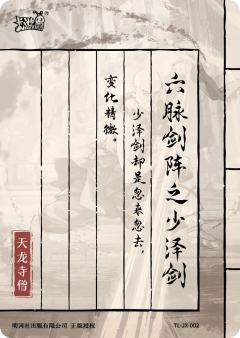 六脉剑阵之少泽剑
少泽剑却是忽来忽去，
变化精微。
天龙寺僧
明河社出版有限公司 正版授权
TL-JX-002